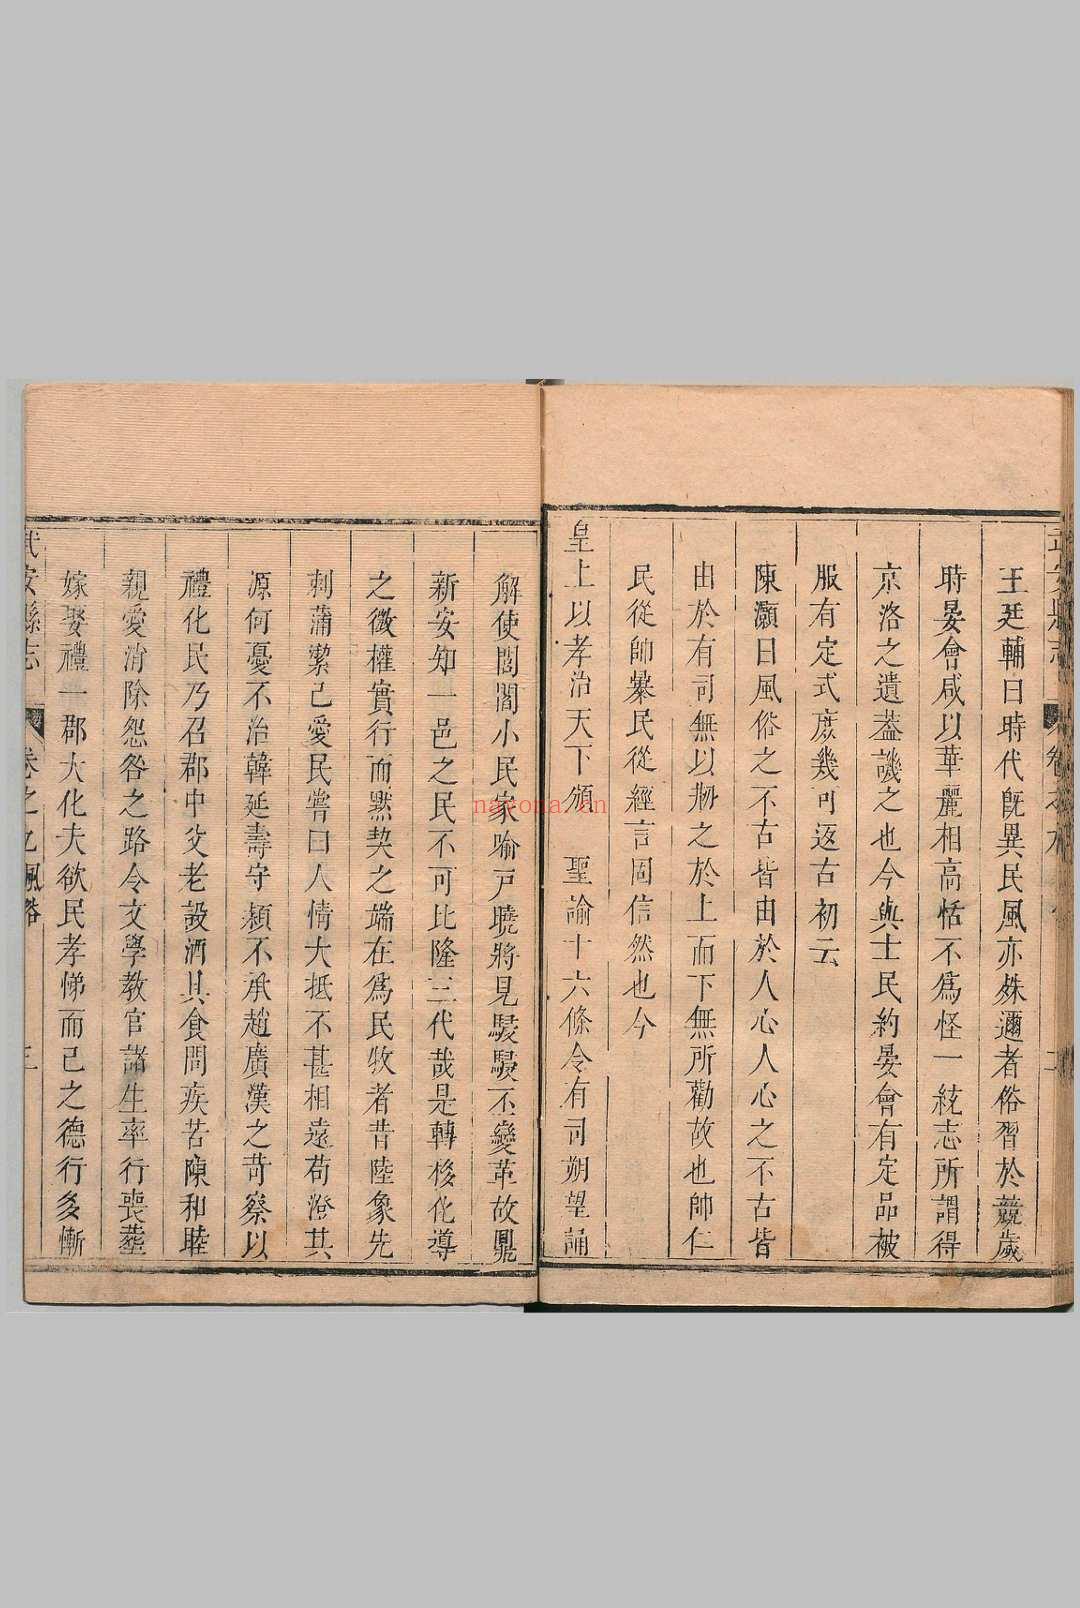 王廷輔曰時代旣異民風亦殊邇者俗習於競歲
時宴會咸以華麗相高恬不爲怪一統志所謂得
京洛之遺蓋譏之也今與士民約宴會有定品被
服有定式庶幾可返古初云
陳灝曰風俗之不古皆由於人心人心之不古皆
由於有司無以𢪛之於上而下無所勸故也帥仁
民從帥暴民從經言固信然也今
皇上以孝治天下頒 聖諭十六條令有司朔望誦
解使閭閻小民家喻戸曉將見駸駸丕變革故鼎
新安知一邑之民不可比隆三代哉是轉移化導
之微權實行而默契之端在爲民牧者昔陸象先
刺蒲潔己愛民嘗曰人情大抵不甚相遠苟澄其
源何憂不治韓延壽守潁不承趙廣漢之苛察以
禮化民乃召郡中父老設酒具食問疾苦陳和睦
親愛消除怨咎之路令文學教官諸生率行喪塟
嫁娶禮一郡大化夫欲民孝悌而已之德行多慚
武安縣志 卷之九 風俗 三
nayona.cn